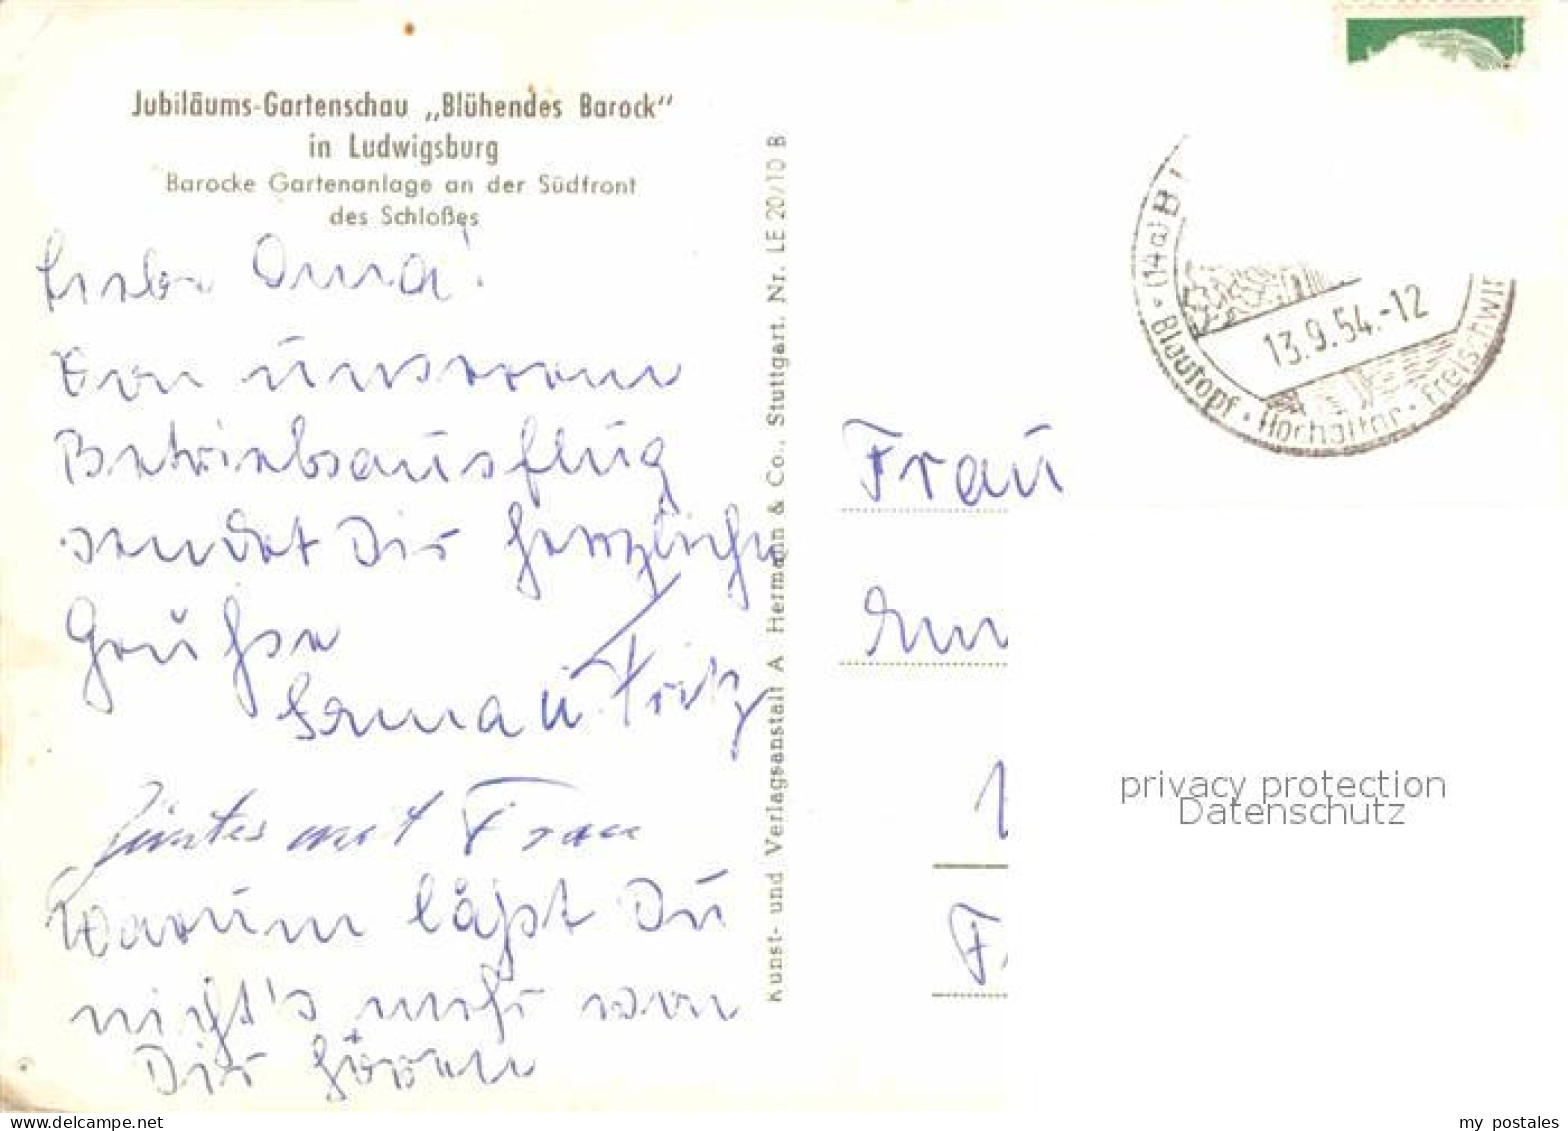 Jubiläums-Gartenschau „Blühendes Barock“
in Ludwigsburg
Barocke Gartenanlage an der Südfront
des Schloßes
Liebe Oma!
Von unserem
Betriebsausflug
sendet Dir herzliche
Grüße
u. Fritz
mit Frau
Warum läßt Du
nicht's mehr von
Dir hören
Kunst- und Verlagsanstalt A Hermann & Co., Stuttgart. Nr. LE 20/10 B
(14a) B
13.9.54.-12
Blautopf · Hochaltar · Freischwi
Frau
privacy protection
Datenschutz
my postales